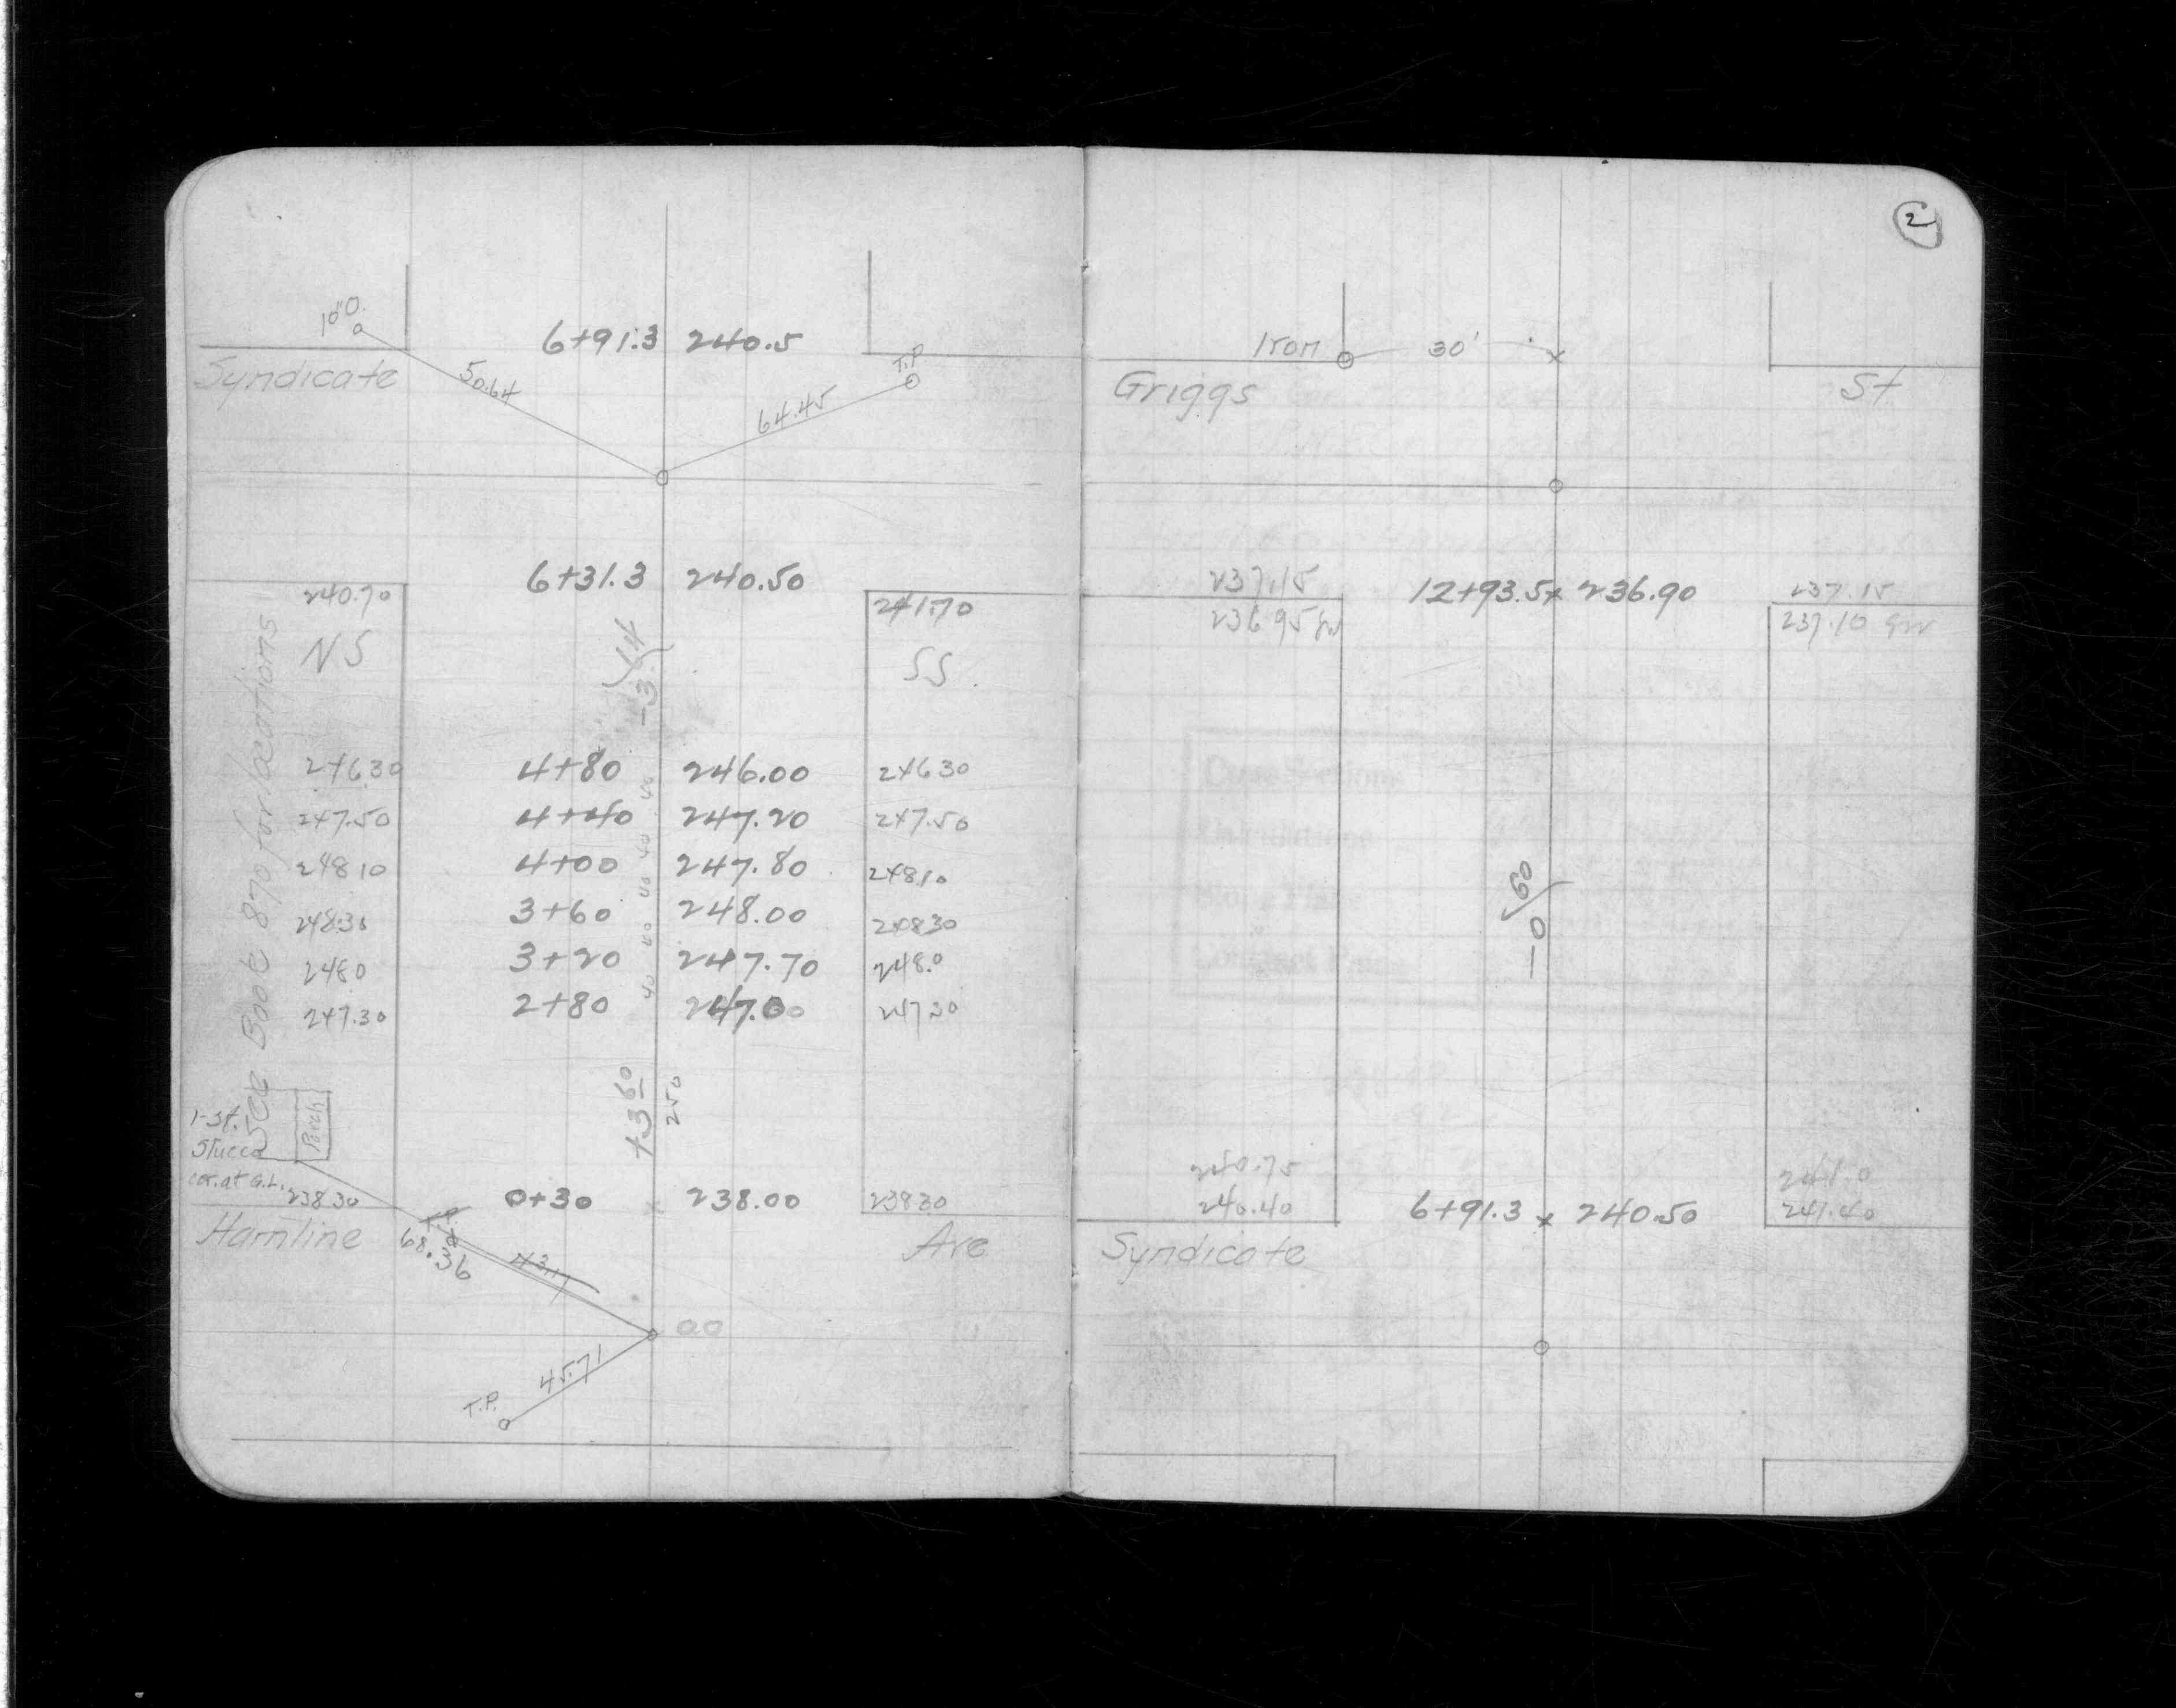 10"O.
6+91.3 240.5
T.P.
Syndicate
50.64
64.45
6+31.3 240.50
240.70
241.70
NS
SS.
-3.14
See Book 870 for locations
246 30 4+80 246.00 246 30
247.50 4+40 247.20 247.50
248 10 4+00 247.80 248 10
248.30 3+60 248.00 248 30
248 0 3+20 247.70 248.0
247.30 2+80 247.00 247 30
40 40 40 40 40
+3 60
250
Porch
1-St.
Stucco
cor. at G.L.
238 30 0+30 238.00 238 30
Hamline Ave
T.P.
68.36
43.17
00
45.71
T.P.
2
Iron 30'
Griggs St
237.15 12+93.5x 236.90 237.15
236 95 gw 237.10 gw
-0 60
240.75 241.0
240.40 6+91.3 x 240.50 241.40
Syndicate